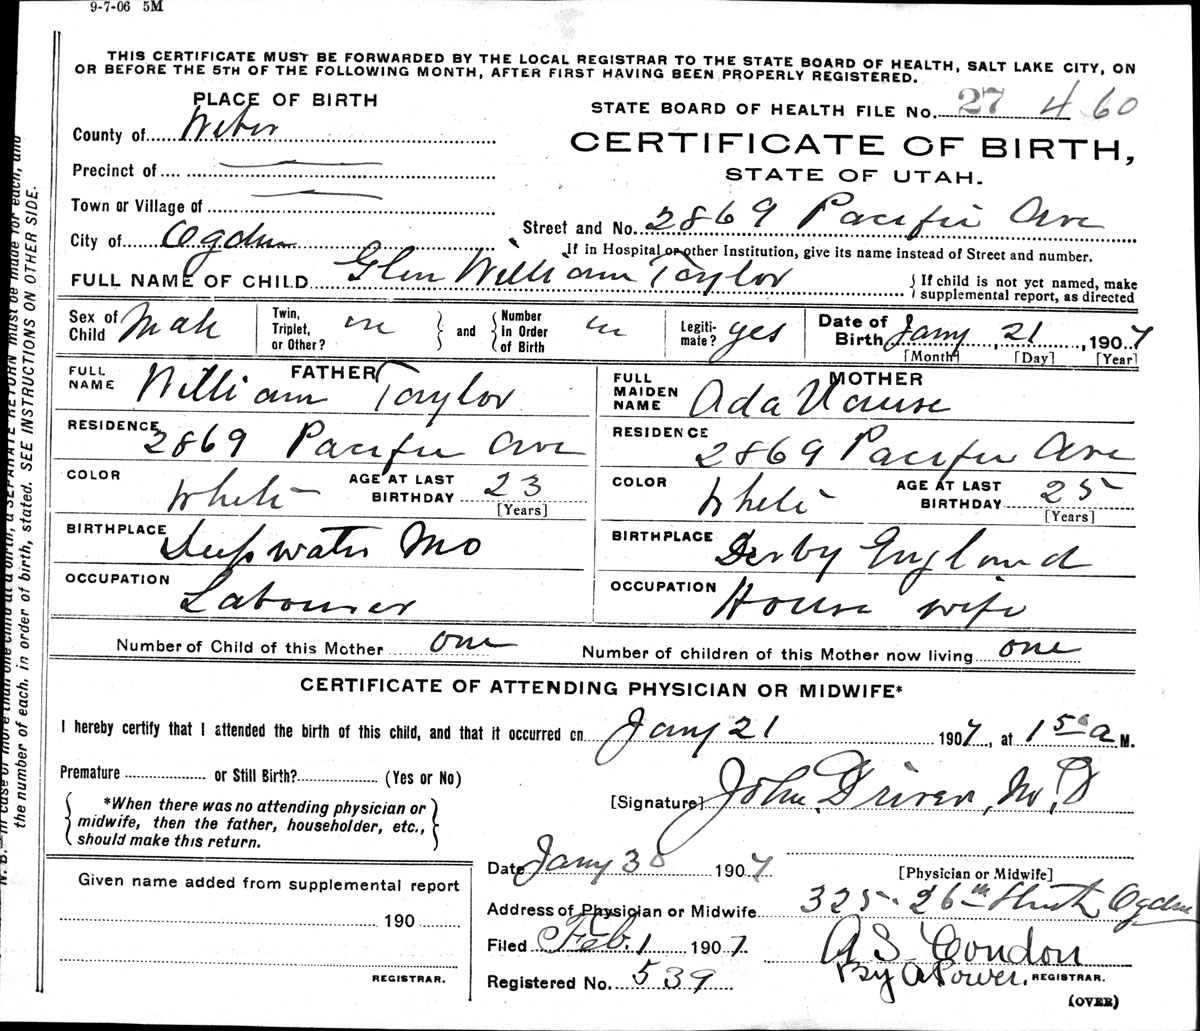 9-7-06 5M
THIS CERTIFICATE MUST BE FORWARDED BY THE LOCAL REGISTRAR TO THE STATE BOARD OF HEALTH, SALT LAKE CITY, ON
OR BEFORE THE 5TH OF THE FOLLOWING MONTH, AFTER FIRST HAVING BEEN PROPERLY REGISTERED.
PLACE OF BIRTH
County of Weber
Precinct of
Town or Village of
City of Ogden
STATE BOARD OF HEALTH FILE No. 27 460
CERTIFICATE OF BIRTH,
STATE OF UTAH.
Street and No. 2869 Pacific Ave
If in Hospital or other Institution, give its name instead of Street and number.
FULL NAME OF CHILD Glen William Taylor
{ If child is not yet named, make
supplemental report, as directed
Sex of Child Male
Twin, Triplet, or Other?
and
Number in Order of Birth
Legitimate? yes
Date of Birth Jany 21, 1907
[Month] [Day] [Year]
FATHER
FULL NAME William Taylor
RESIDENCE 2869 Pacific Ave
COLOR White AGE AT LAST BIRTHDAY 23
[Years]
BIRTHPLACE Deepwater Mo
OCCUPATION Labourer
MOTHER
FULL MAIDEN NAME Ada
RESIDENCE 2869 Pacific Ave
COLOR White AGE AT LAST BIRTHDAY 25
[Years]
BIRTHPLACE Derby England
OCCUPATION House wife
Number of Child of this Mother one
Number of children of this Mother now living one
CERTIFICATE OF ATTENDING PHYSICIAN OR MIDWIFE*
I hereby certify that I attended the birth of this child, and that it occurred on Jany 21 1907, at 1 50 a M.
Premature or Still Birth? (Yes or No)
*When there was no attending physician or
midwife, then the father, householder, etc.,
should make this return.
[Signature] John Driver, M.D
[Physician or Midwife]
Date Jany 30 1907
Address of Physician or Midwife 325-26th Street Ogden
Filed Feb. 1 1907
A S Condon
By A Power. REGISTRAR.
Registered No. 539
(OVER)
Given name added from supplemental report
190
REGISTRAR.
N. B.—In case of more than one child at a birth, a SEPARATE RETURN must be made for each, and
the number of each, in order of birth, stated. SEE INSTRUCTIONS ON OTHER SIDE.